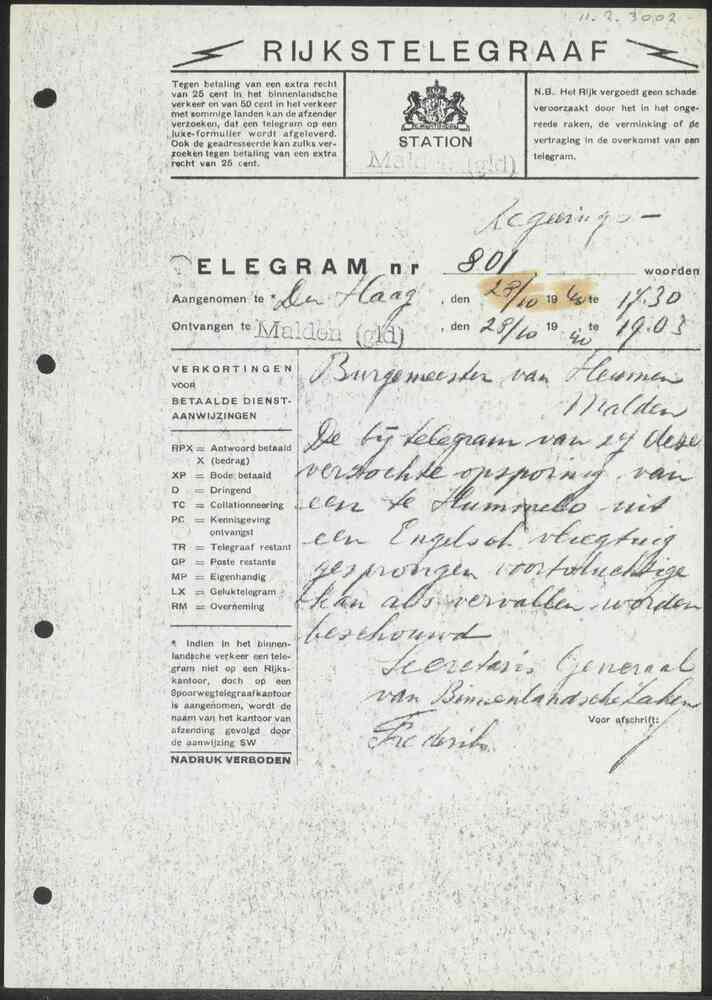 11. 2. 3002
RIJKSTELEGRAAF
Tegen betaling van een extra recht
van 25 cent in het binnenlandsche
verkeer en van 50 cent in het verkeer
met sommige landen kan de afzender
verzoeken, dat een telegram op een
luxe-formulier wordt afgeleverd.
Ook de geadresseerde kan zulks ver-
zoeken tegen betaling van een extra
recht van 25 cent.
STATION
Malden (gld)
N.B. Het Rijk vergoedt geen schade
veroorzaakt door het in het onge-
reede raken, de verminking of de
vertraging in de overkomst van een
telegram.
Regeerings-
ELEGRAM nr 801 woorden
Aangenomen te * Den Haag , den 28/10 19 40 te 17.30
Ontvangen te Malden (gld) , den 28/10 19 40 te 19.03
VERKORTINGEN
VOOR
BETAALDE DIENST-
AANWIJZINGEN
RPX = Antwoord betaald
X (bedrag)
XP = Bode betaald
D = Dringend
TC = Collationneering
PC = Kennisgeving
ontvangst
TR = Telegraaf restant
GP = Poste restante
MP = Eigenhandig
LX = Geluktelegram
RM = Overneming
* Indien in het binnen-
landsche verkeer een tele-
gram niet op een Rijks-
kantoor, doch op een
Spoorwegtelegraafkantoor
is aangenomen, wordt de
naam van het kantoor van
afzending gevolgd door
de aanwijzing SW
NADRUK VERBODEN
Burgemeester van Heumen
Malden
De bij telegram van 27 deze
verzochte opsporing van
een te Hummelo uit
een Engelsch vliegtuig
gesprongen voortvluchtige
kan als vervallen worden
beschouwd
Secretaris Generaal
van Binnenlandsche Zaken
Voor afschrift:
Frederiks